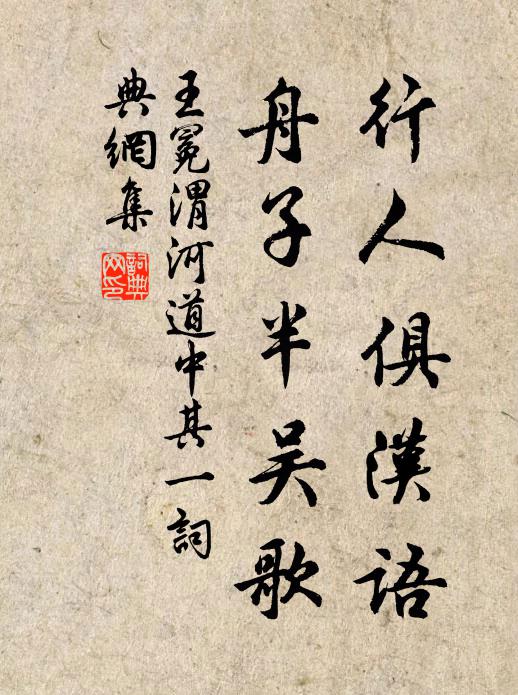 行人俱漢語
舟子半吴歌
王冕渭河道中其一詞
典網集
詞典
网印